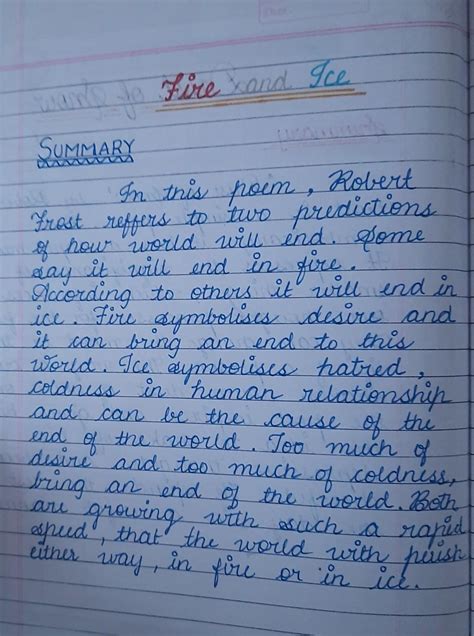 Fire and Ice
SUMMARY
In this poem, Robert
Frost reffers to two predictions
of how world will end. Some
say it will end in fire.
According to others it will end in
ice. Fire symbolises desire and
it can bring an end to this
world. Ice symbolises hatred,
coldness in human relationship
and can be the cause of the
end of the world. Too much of
desire and too much of coldness,
bring an end of the world. Both
are growing with such a rapid
speed, that the world with perish
either way, in fire or in ice.